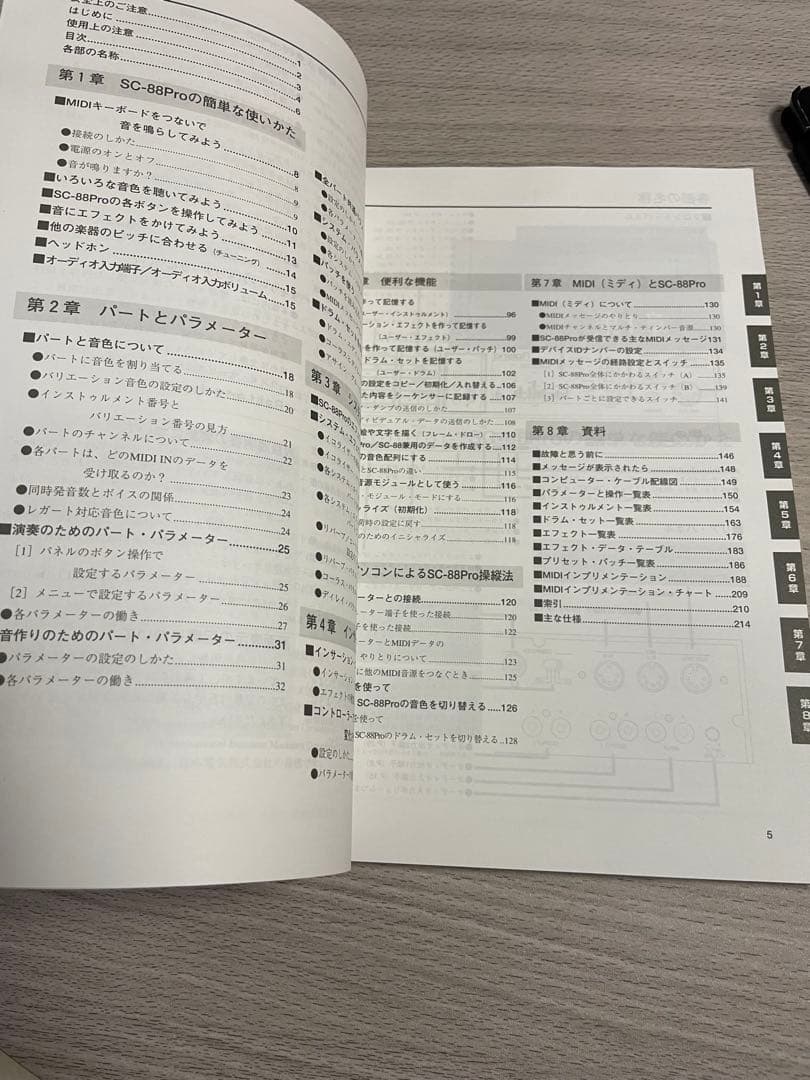 安全上のご注意
はじめに……1
使用上の注意……2
目次……3
各部の名称……4
6
第1章 SC-88Proの簡単な使いかた
■MIDIキーボードをつないで
音を鳴らしてみよう……8
●接続のしかた……8
●電源のオンとオフ……9
●音が鳴りますか?……9
■いろいろな音色を聴いてみよう……10
■SC-88Proの各ボタンを操作してみよう……11
■音にエフェクトをかけてみよう……13
■他の楽器のピッチに合わせる(チューニング)……14
■ヘッドホン……15
■オーディオ入力端子/オーディオ入力ボリューム……15
第2章 パートとパラメーター
■パートと音色について……18
●パートに音色を割り当てる……18
●バリエーション音色の設定のしかた……20
●インストゥルメント番号と
バリエーション番号の見方……21
●パートのチャンネルについて……22
●各パートは、どのMIDI INのデータを
受け取るのか?……23
●同時発音数とボイスの関係……24
●レガート対応音色について……24
■演奏のためのパート・パラメーター……25
[1] パネルのボタン操作で
設定するパラメーター……25
[2] メニューで設定するパラメーター……26
●各パラメーターの働き……27
音作りのためのパート・パラメーター……31
●パラメーターの設定のしかた……31
●各パラメーターの働き……32
■全パート
■システム
■パッチを
■ドラム・セ
第3章
■SC-88Proの
■システム
第4章 イン
■インサーション
●インサーション
●エフェクトの
■コントローラー
●設定のしかた
●パラメーター
章 便利な機能
作って記憶する
ユーザー・インストゥルメント)……96
ーション・エフェクトを作って記憶する
(ユーザー・エフェクト)……99
を作って記憶する(ユーザー・パッチ)100
ドラム・セットを記憶する
(ユーザー・ドラム)……102
の設定をコピー/初期化/入れ替える..106
た内容をシーケンサーに記録する……107
・ダンプの送信のしかた……107
ディビデュアル・データの送信のしかた……108
絵や文字を描く(フレーム・ドロー)……110
Pro/SC-88兼用のデータを作成する...112
の音色配列にする……114
とSC-88Proの違い……115
音源モジュールとして使う……116
・モジュール・モードにする……116
ャライズ(初期化)……118
荷時の設定に戻す……118
のためのイニシャライズ……118
ソコンによるSC-88Pro操縦法
ーターとの接続……120
ーター端子を使った接続……120
子を使った接続……122
ーターとMIDIデータの
やりとりについて……123
に他のMIDI音源をつなぐとき……125
を使って
SC-88Proの音色を切り替える.....126
を使って
SC-88Proのドラム・セットを切り替える..128
第7章 MIDI(ミディ)とSC-88Pro
■MIDI(ミディ)について……130
●MIDIメッセージのやりとり……130
●MIDIチャンネルとマルチ・ティンバー音源……130
■SC-88Proが受信できる主なMIDIメッセージ131
■デバイスIDナンバーの設定……134
■MIDIメッセージの経路設定とスイッチ……135
[1] SC-88Pro全体にかかわるスイッチ(A)……135
[2] SC-88Pro全体にかかわるスイッチ(B)……139
[3] パートごとに設定できるスイッチ……141
第8章 資料
■故障と思う前に……146
■メッセージが表示されたら……148
■コンピューター・ケーブル配線図……149
■パラメーターと操作一覧表……150
■インストゥルメント一覧表……154
■ドラム・セット一覧表……163
■エフェクト一覧表……176
■エフェクト・データ・テーブル……183
■プリセット・パッチ一覧表……186
■MIDIインプリメンテーション……188
■MIDIインプリメンテーション・チャート……209
■索引……210
■主な仕様……214
第1章
第2章
第3章
第4章
第5章
第6章
第7章
第8章
5